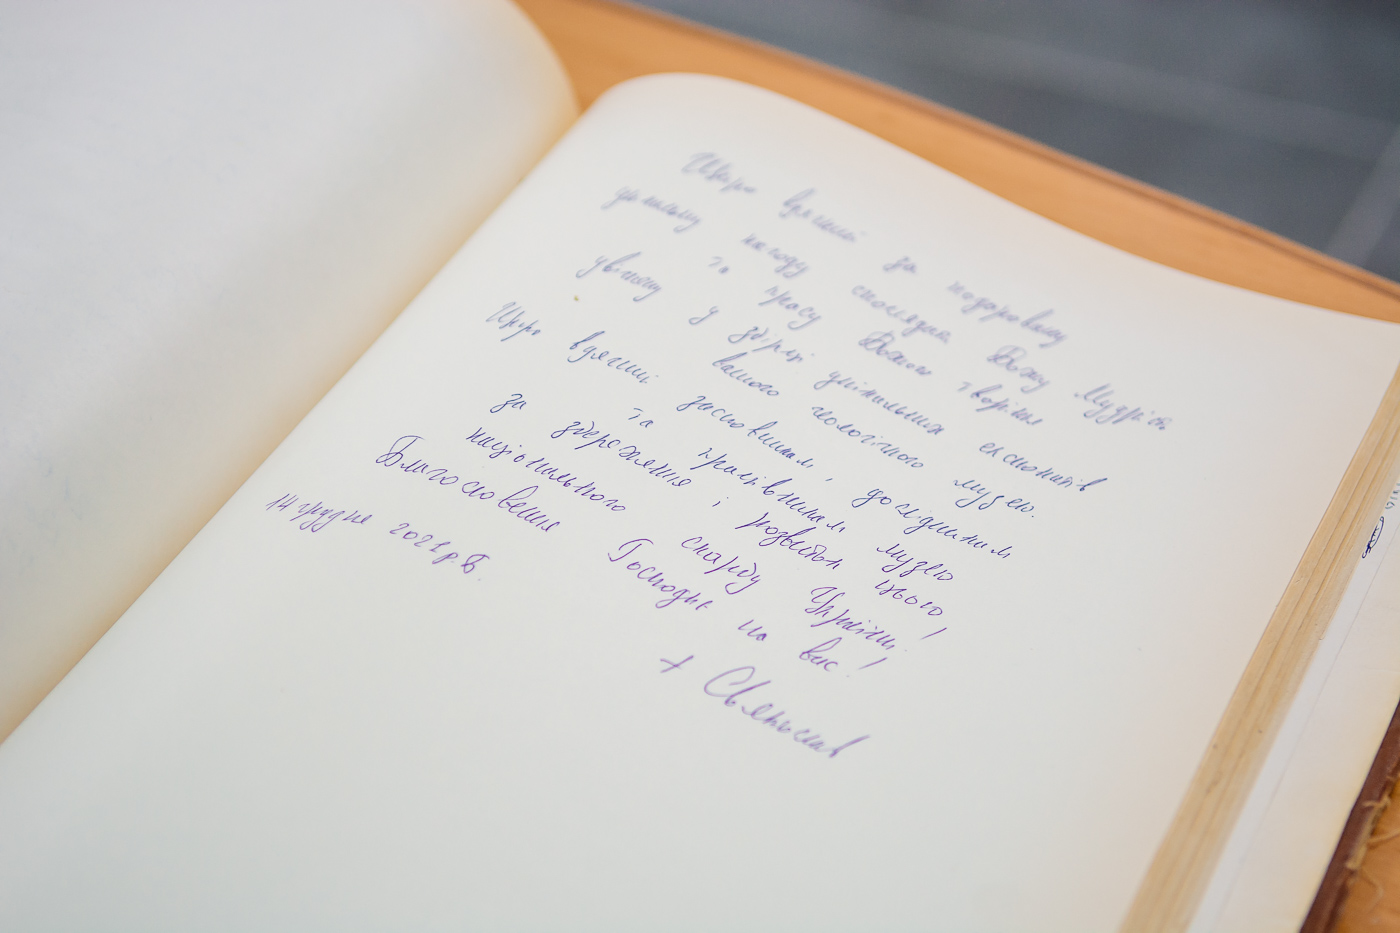 Щиро вдячний за подаровану
унікальну нагоду споглядати Божу Мудрість
та красу Божого творіння
увіяну у збірці унікальних експонатів
вашого геологічного музею.
Щиро вдячний засновникам, дослідникам
та працівникам музею
за збереження і розвиток цього
національного скарбу України!
Благословення Господнє на вас!
14 грудня 2021 р.Б.
+ Святослав